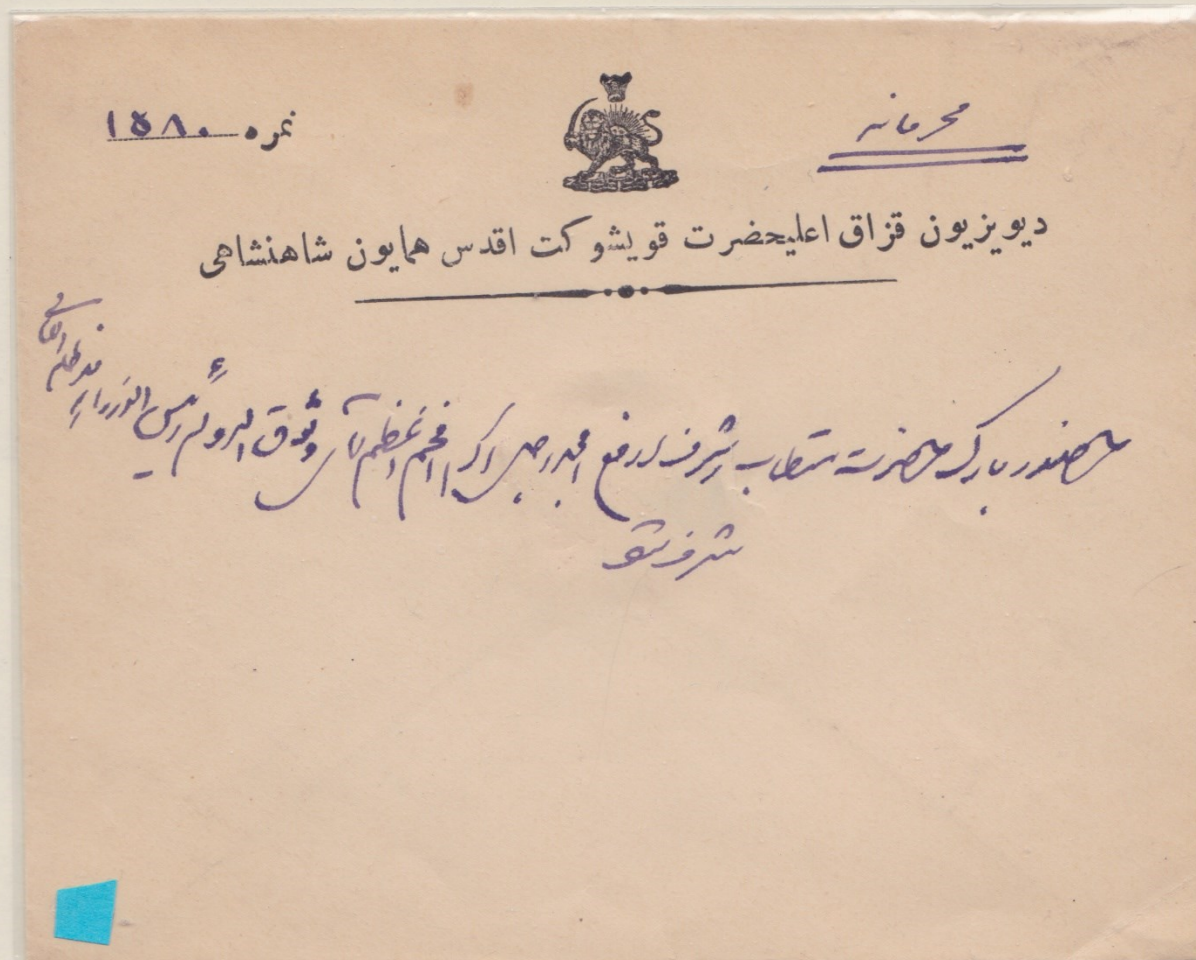 محرمانه
نمره ۱۵۸۰
دیویزیون قزاق اعلیحضرت قویشوکت اقدس همایون شاهنشاهی
حضور مبارک حضرت مستطاب اشرف ارفع امجد اجل اکرم افخم اعظم آقای وثوق الدوله رئیس الوزراء مدظله العالی
مشرف شود